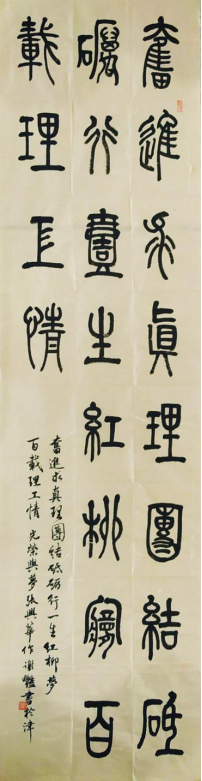 奮進求真理團結砥
礪行一生紅柳夢百
載理工情
奮進求真理團結砥礪行一生紅柳夢
百載理工情 光榮與夢張興華作謝豔書於津